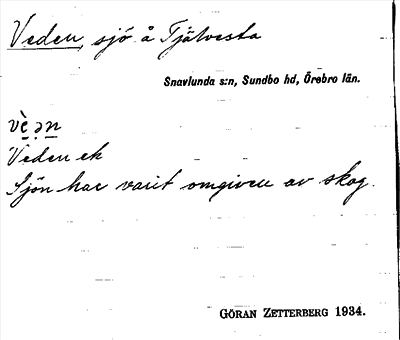 Veden, sjö å Tjälvesta
Snavlunda s:n, Sundbo hd, Örebro län.
vè̱ ə̣n̲
Veden ek
Sjön har varit omgiven av skog.
GÖRAN ZETTERBERG 1934.